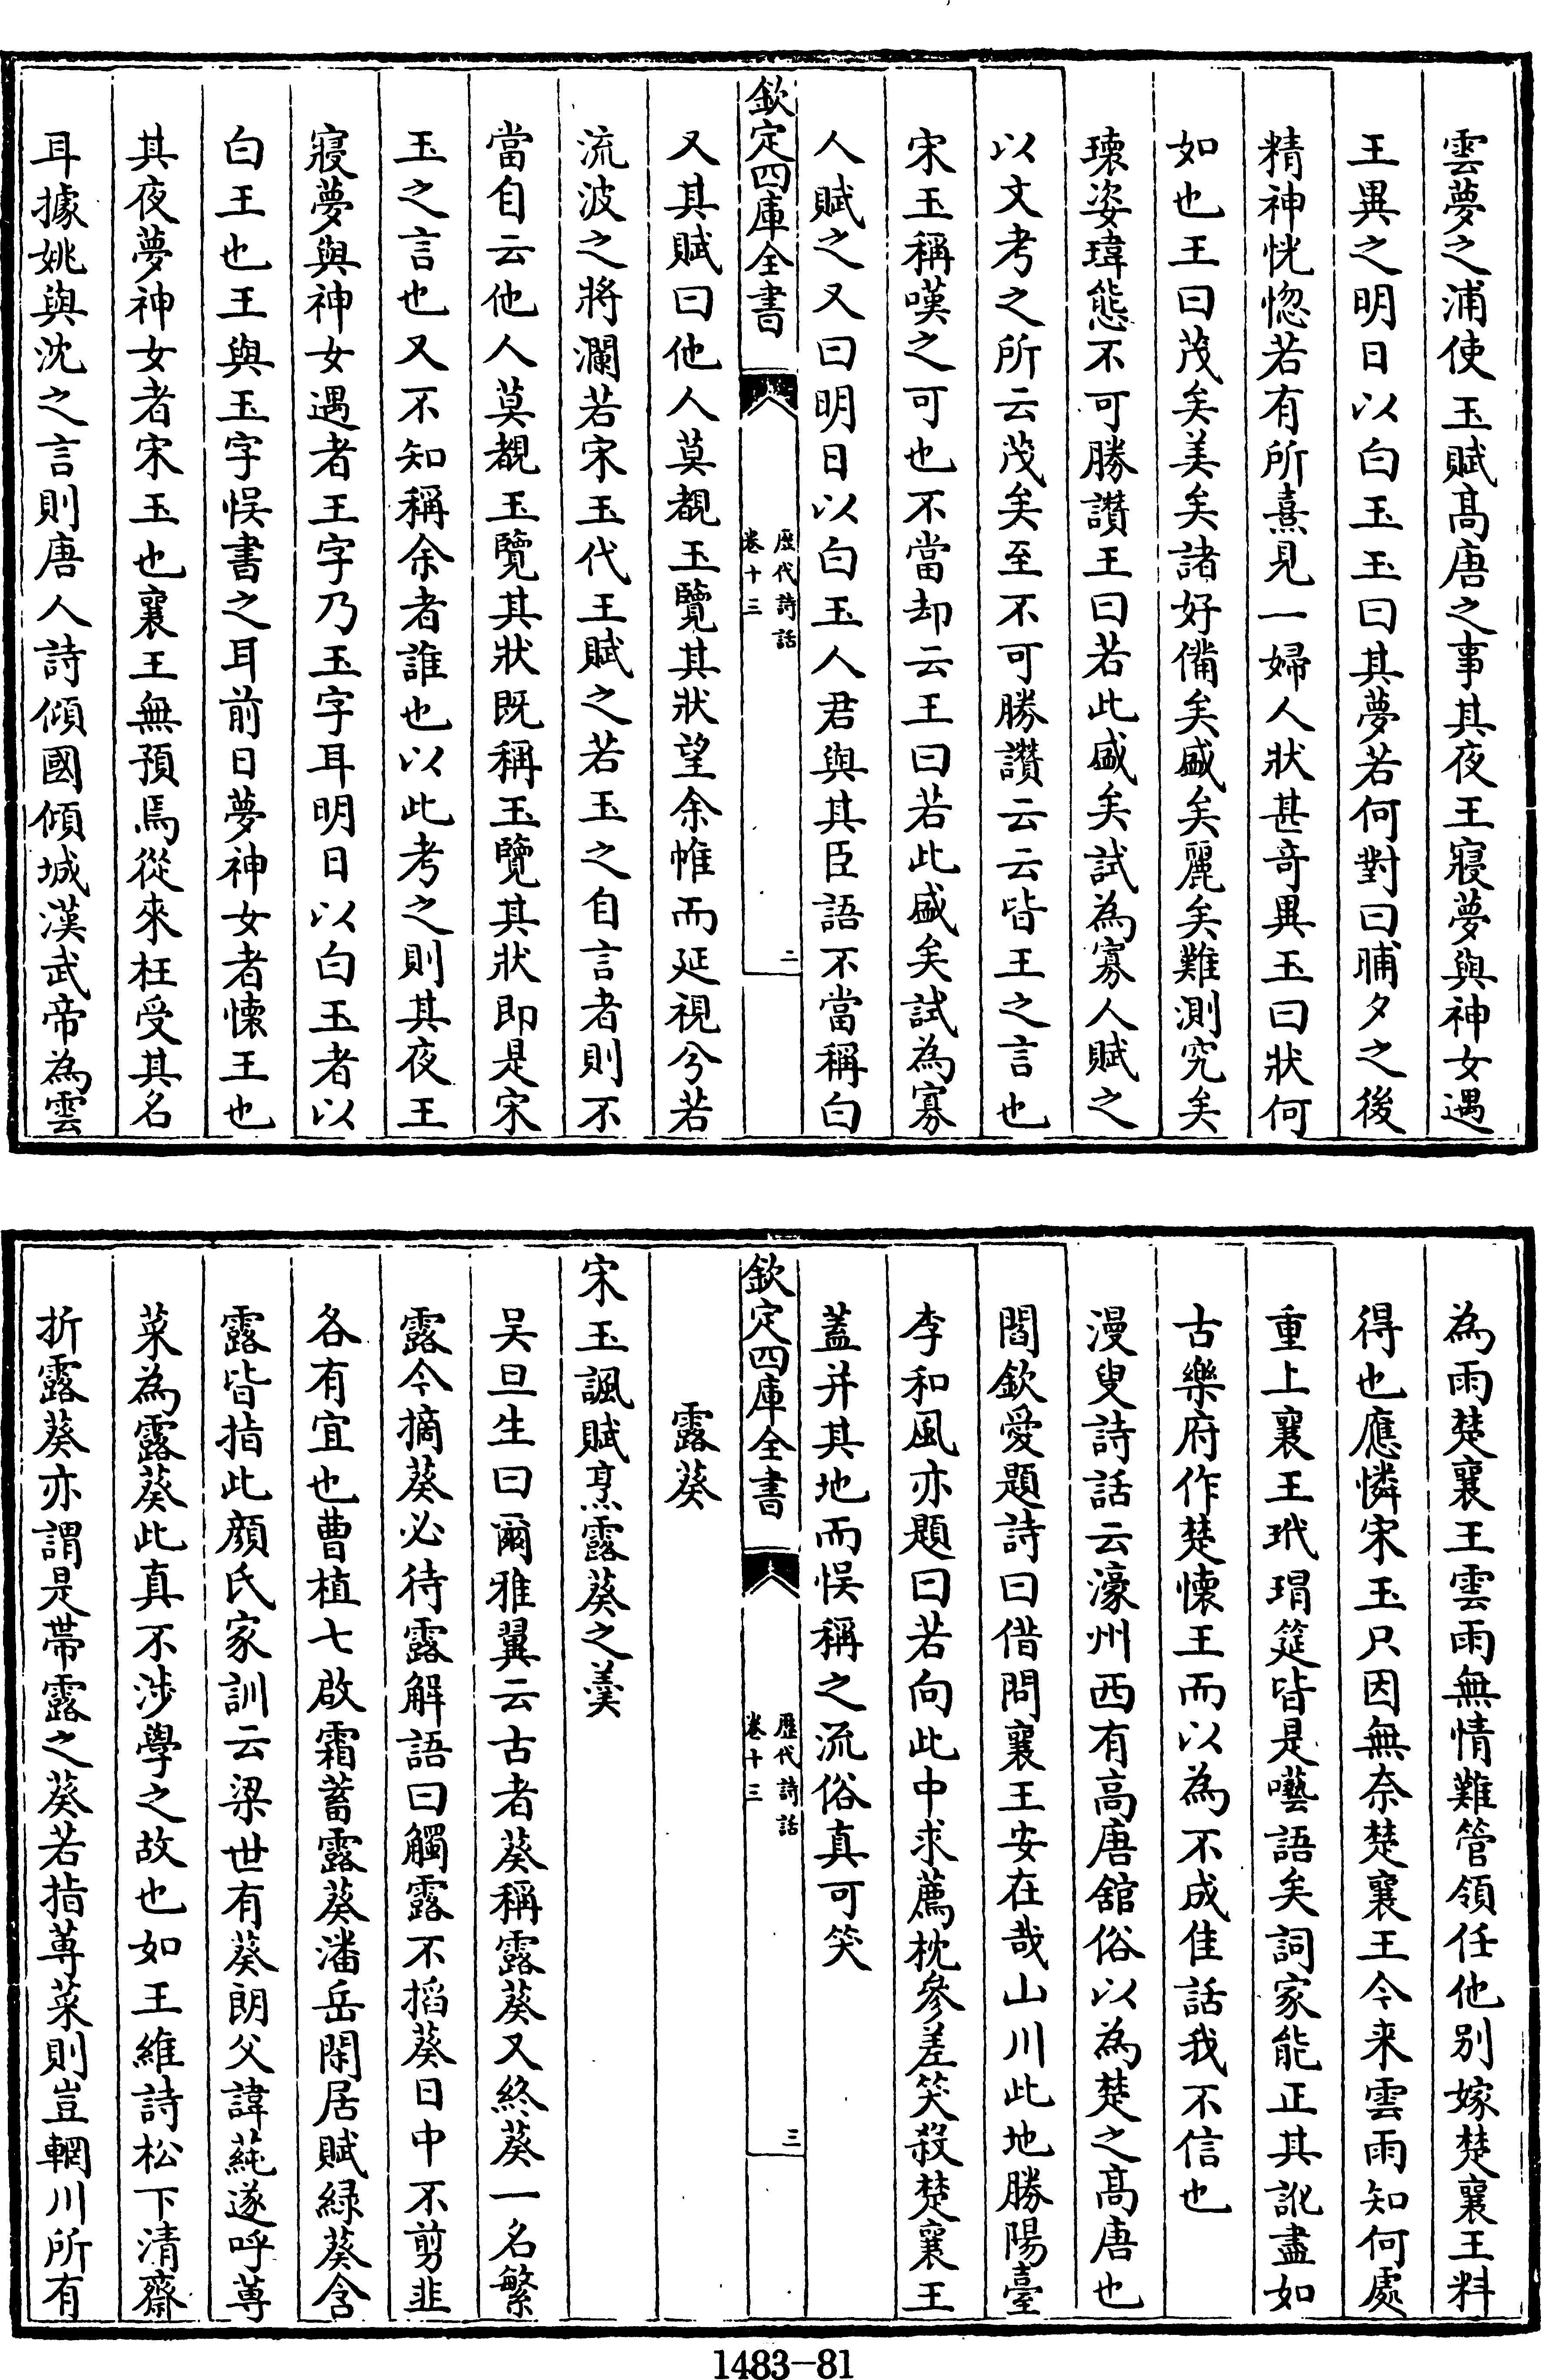 雲夢之浦使玉賦髙唐之事其夜王寢夢與神女遇
王異之明日以白玉玉曰其夢若何對曰晡夕之後
精神恍惚若有所熹見一婦人狀甚竒異玉曰狀何
如也王曰茂矣美矣諸好備矣盛矣麗矣難測究矣
瓌姿瑋態不可勝讚王曰若此盛矣試為寡人賦之
以文考之所云茂矣至不可勝讚云云皆王之言也
宋玉稱嘆之可也不當却云王曰若此盛矣試為寡
人賦之又曰明日以白玉人君與其臣語不當稱白
欽定四庫全書
歴代詩話
卷十三
二
又其賦曰他人莫覩玉覽其狀望余帷而延視兮若
流波之將瀾若宋玉代王賦之若玉之自言者則不
當自云他人莫覩玉覽其狀既稱玉覽其狀即是宋
玉之言也又不知稱余者誰也以此考之則其夜王
寢夢與神女遇者王字乃玉字耳明日以白玉者以
白王也王與玉字悮書之耳前日夢神女者懐王也
其夜夢神女者宋玉也襄王無預焉從來枉受其名
耳據姚與沈之言則唐人詩傾國傾城漢武帝為雲
為雨楚襄王雲雨無情難管領任他别嫁楚襄王料
得也應憐宋玉只因無奈楚襄王今来雲雨知何處
重上襄王玳瑁筵皆是囈語矣詞家能正其訛盡如
古樂府作楚懐王而以為不成佳話我不信也
漫叟詩話云濠州西有高唐舘俗以為楚之髙唐也
閻欽愛題詩曰借問襄王安在哉山川此地勝陽臺
李和風亦題曰若向此中求薦枕參差笑殺楚襄王
蓋并其地而悮稱之流俗真可笑
欽定四庫全書
歴代詩話
卷十三
三
露葵
宋玉諷賦烹露葵之羮
吴旦生曰爾雅翼云古者葵稱露葵又終葵一名繁
露今摘葵必待露解語曰觸露不搯葵日中不剪韭
各有宜也曹植七啟霜蓄露葵潘岳閑居賦緑葵含
露皆指此顔氏家訓云梁世有蔡朗父諱蒓遂呼蓴
菜為露葵此真不渉學之故也如王維詩松下清齋
折露葵亦謂是帶露之葵若指蓴菜則豈輞川所有
1483-81